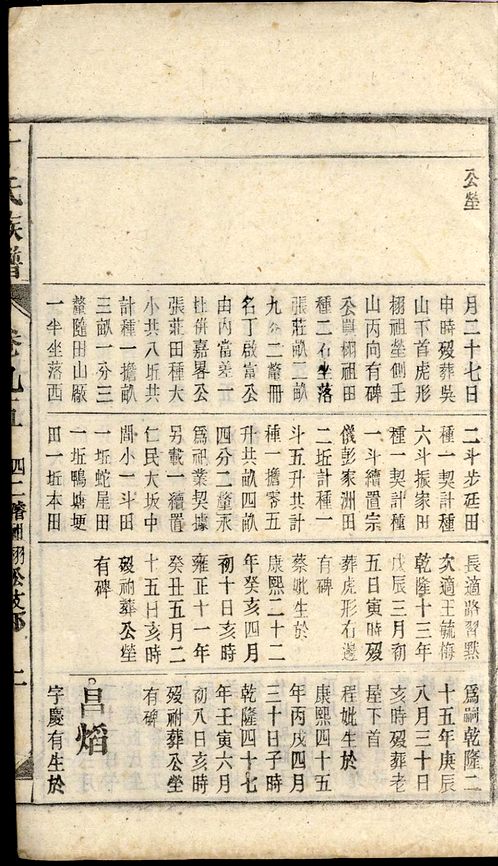 公塋
月二十七日
申時歿葬吳
山下首虎形
栩祖塋側壬
山丙向有碑
公與栩祖田
種二石坐落
張莊畝二畝
九分二釐冊
名丁啟富公
由內當差一
併嘉畧公
張莊田種大
小共八坵共
計種一擔畝
三畝一分三
釐隨田山厰
一半坐落西
二斗步廷田
種一契計種
六斗振家田
種一契計種
一斗續置宗
儀彭家洲田
二坵計種一
斗五升共計
種一擔零五
升共畝四畝
四分二釐永
爲祖業契據
另載一續置
仁民大坂中
間小一斗田
一坵蛇尾田
一坵鴨塘埂
田一坵本田
長適路習點
次適王毓梅
乾隆十三年
戊辰三月初
五日寅時歿
葬虎形右邊
有碑
蔡妣生於
康熙二十二
年癸亥四月
初十日亥時
雍正十一年
癸丑五月二
十五日亥時
歿祔葬公塋
有碑
爲嗣乾隆二
十五年庚辰
八月三十日
亥時歿葬老
屋下首
程妣生於
康熙四十五
年丙戌四月
三十日子時
乾隆四十七
年壬寅六月
初八日亥時
歿祔葬公塋
有碑
昌熖
字慶有生於
氏族譜